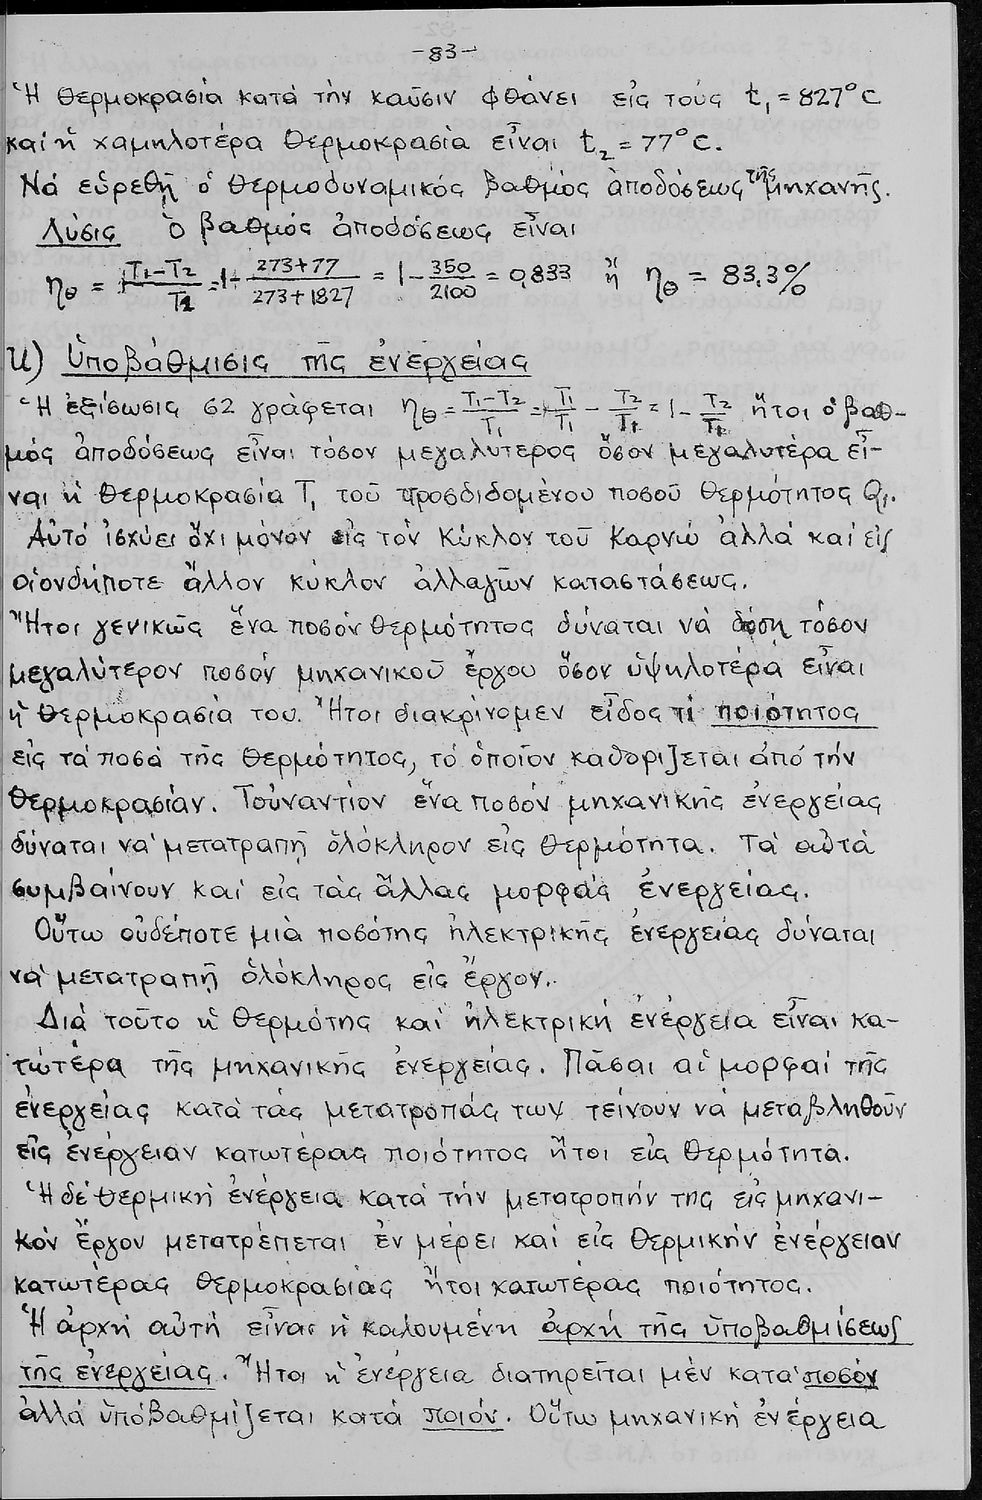 -83-
Ἡ θερμοκρασία κατά τήν καῦσιν φθάνει εἰς τούς t₁ = 827°C
καί ἡ χαμηλοτέρα θερμοκρασία εἶναι t₂ = 77°C.
Νά εὑρεθῇ ὁ θερμοδυναμικός βαθμός ἀποδόσεως τῆς μηχανῆς.
Λύσις Ὁ βαθμός ἀποδόσεως εἶναι
ηθ = T₁-T₂/T₂ = 1- 273+77/273+1827 = 1- 350/2100 = 0,833 ἤ ηθ = 83,3%
ι) Ὑποβάθμισις τῆς ἐνεργείας
Ἡ ἐξίσωσις 62 γράφεται ηθ = T₁-T₂/T₁ = T₁/T₁ - T₂/T₁ = 1- T₂/T₁ ἤτοι ὁ βαθ-
μός ἀποδόσεως εἶναι τόσον μεγαλύτερος ὅσον μεγαλυτέρα εἶ-
ναι ἡ θερμοκρασία T₁ τοῦ προσδιδομένου ποσοῦ θερμότητος Q₁.
Αὐτό ἰσχύει ὄχι μόνον εἰς τόν Κύκλον τοῦ Καρνώ ἀλλά καί εἰς
οἱονδήποτε ἄλλον κύκλον ἀλλαγῶν καταστάσεως.
Ἤτοι γενικῶς ἕνα ποσόν θερμότητος δύναται νά δόσῃ τόσον
μεγαλύτερον ποσόν μηχανικοῦ ἔργου ὅσον ὑψηλοτέρα εἶναι
ἡ θερμοκρασία του. Ἤτοι διακρίνομεν εἶδος τί ποιότητος
εἰς τά ποσά τῆς θερμότητος, τό ὁποῖον καθορίζεται ἀπό τήν
θερμοκρασίαν. Τοὐναντίον ἕνα ποσόν μηχανικῆς ἐνεργείας
δύναται νά μετατραπῇ ὁλόκληρον εἰς θερμότητα. Τά αὐτά
συμβαίνουν καί εἰς τάς ἄλλας μορφάς ἐνεργείας.
Οὕτω οὐδέποτε μιά ποσότης ἠλεκτρικῆς ἐνεργείας δύναται
νά μετατραπῇ ὁλόκληρος εἰς ἔργον.
Διά τοῦτο ἡ θερμότης καί ἠλεκτρική ἐνέργεια εἶναι κα-
τώτερα τῆς μηχανικῆς ἐνεργείας. Πᾶσαι αἱ μορφαί τῆς
ἐνεργείας κατά τάς μετατροπάς των τείνουν νά μεταβληθοῦν
εἰς ἐνέργειαν κατωτέρας ποιότητος ἤτοι εἰς θερμότητα.
Ἡ δέ θερμική ἐνέργεια κατά τήν μετατροπήν της εἰς μηχανι-
κόν ἔργον μετατρέπεται ἐν μέρει καί εἰς θερμικήν ἐνέργειαν
κατωτέρας θερμοκρασίας ἤτοι κατωτέρας ποιότητος.
Ἡ ἀρχή αὐτή εἶναι ἡ καλουμένη ἀρχή τῆς ὑποβαθμίσεως
τῆς ἐνεργείας. Ἤτοι ἡ ἐνέργεια διατηρεῖται μέν κατά ποσόν
ἀλλά ὑποβαθμίζεται κατά ποιόν. Οὕτω μηχανική ἐνέργεια